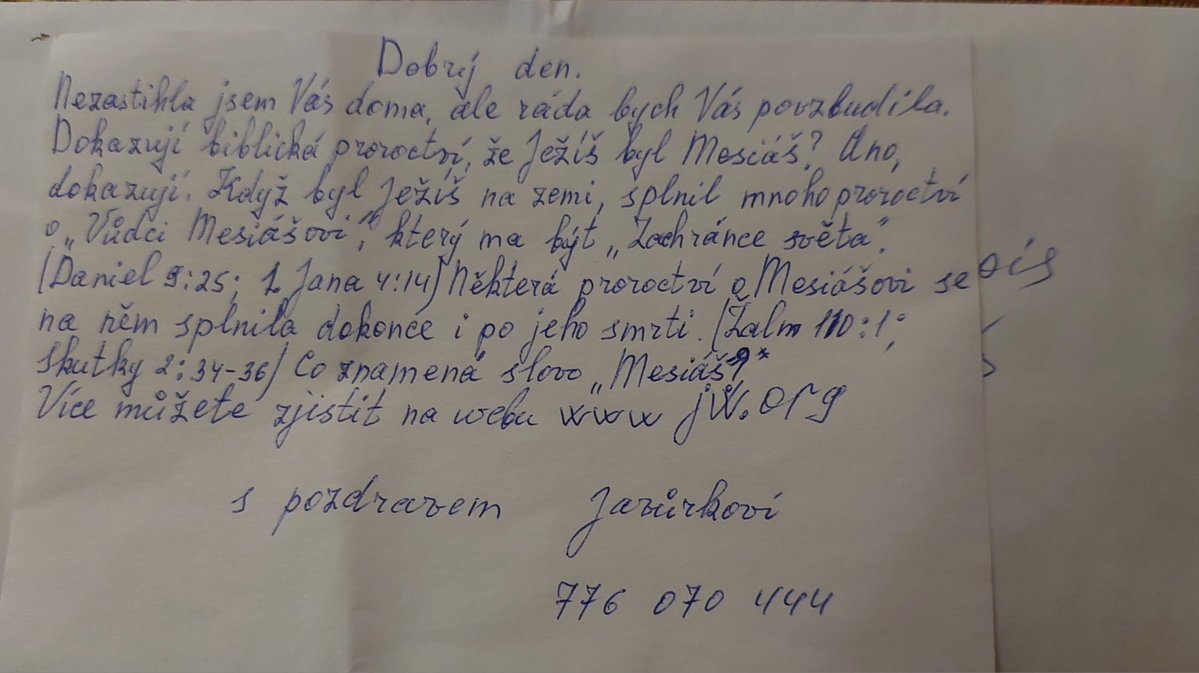 Dobrý den.
Nezastihla jsem Vás doma, ale ráda bych Vás povzbudila.
Dokazují biblická proroctví, že Ježíš byl Mesiáš? Ano,
dokazují. Když byl Ježíš na zemi, splnil mnoho proroctví
o „Vůdci Mesiášovi", který ma být „Zachránce světa".
(Daniel 9:25; 1 Jana 4:14) Některá proroctví o Mesiášovi se
na něm splnila dokonce i po jeho smrti. (Žalm 110:1;
Skutky 2:34-36) Co znamená slovo „Mesiáš?"
Více můžete zjistit na webu www jw.org
s pozdravem
776 070 444